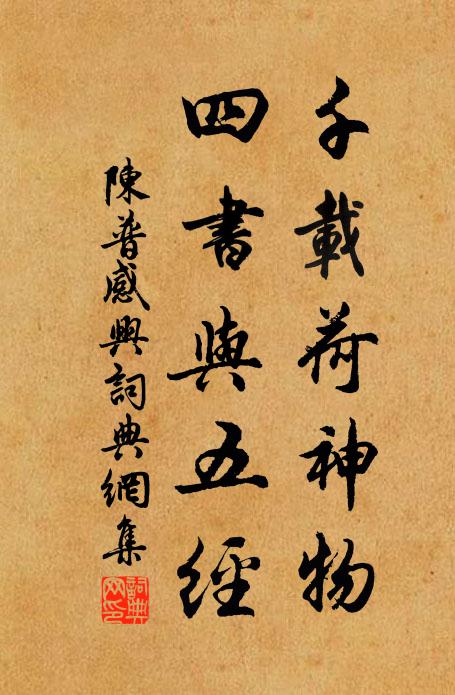 千載荷神物
四書與五經
陳普感興詞典網集
詞典网印